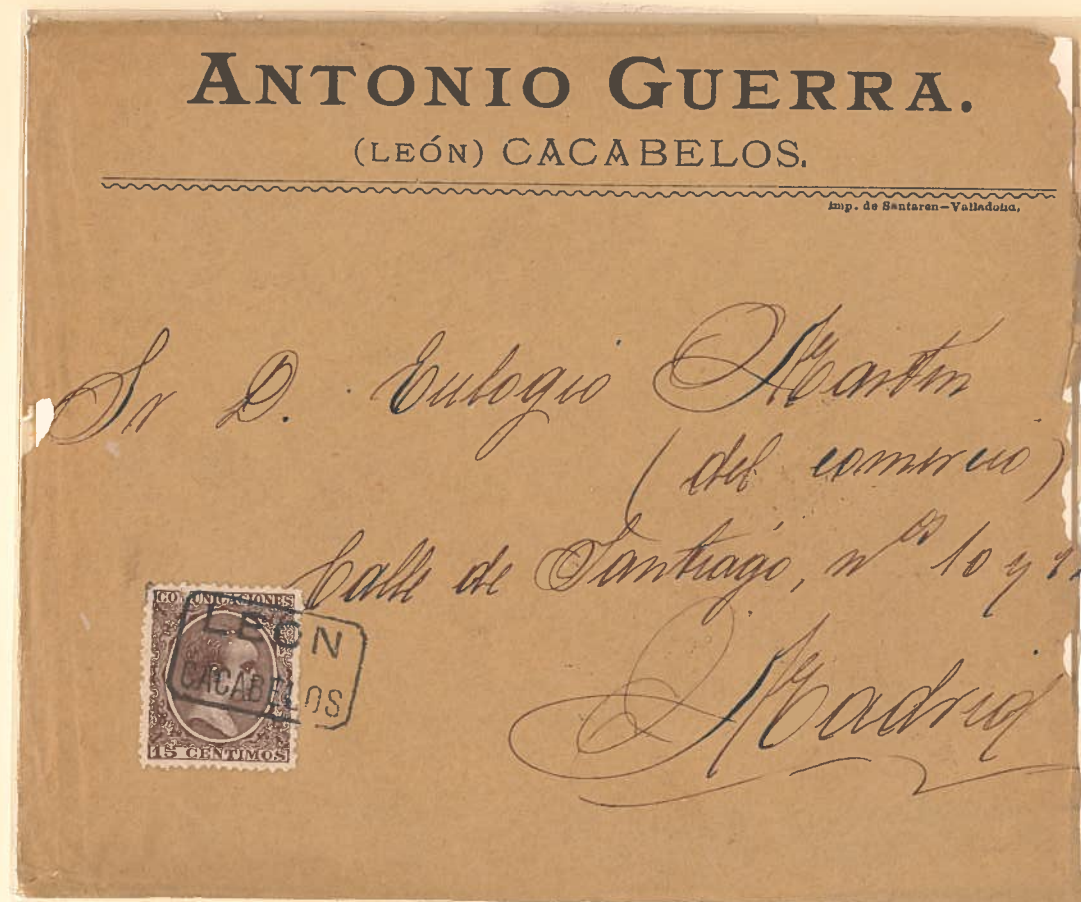 ANTONIO GUERRA.
(LEÓN) CACABELOS.
Imp. de Santaren—Valladolid.
Sr D. Eulogio Martín
(del comercio)
Calle de Santiago, nos 10 y
Madrid
COMUNICACIONES
LEON
CACABELOS
15 CENTIMOS